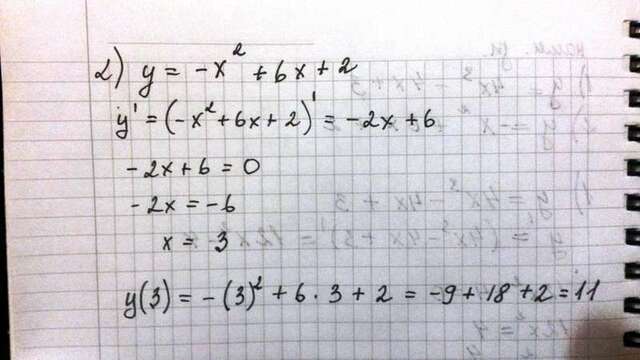 2) y = -x² + 6x + 2
y' = (-x² + 6x + 2)' = -2x + 6
-2x + 6 = 0
-2x = -6
x = 3
y(3) = -(3)² + 6 · 3 + 2 = -9 + 18 + 2 = 11